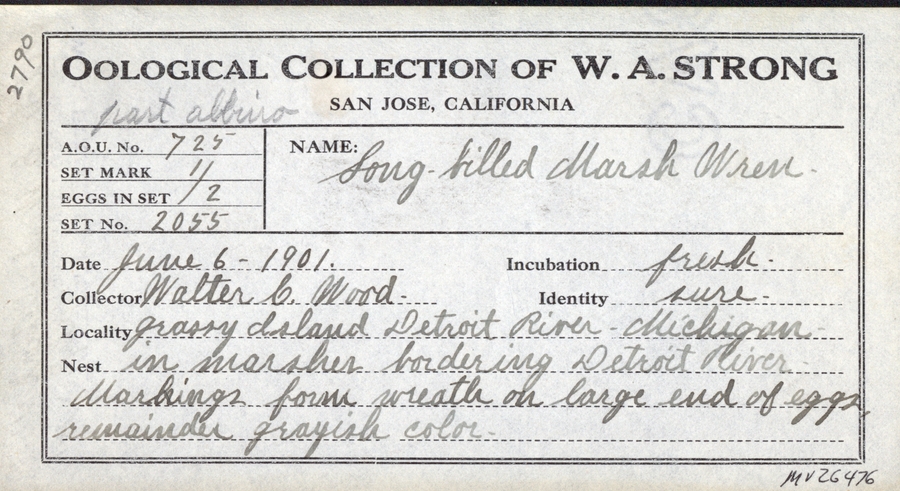 2790
OOLOGICAL COLLECTION OF W. A. STRONG
part albino
SAN JOSE, CALIFORNIA
A.O.U. No. 725
NAME: Long-billed Marsh Wren -
SET MARK 11
EGGS IN SET /2
SET No. 2055
Date June 6 - 1901.
Incubation fresh -
Collector Walter C. Wood -
Identity sure -
Locality grassy Island Detroit River - Michigan -
Nest in marshes bordering Detroit River -
Markings form wreath on large end of eggs,
remainder grayish color -
MV26476